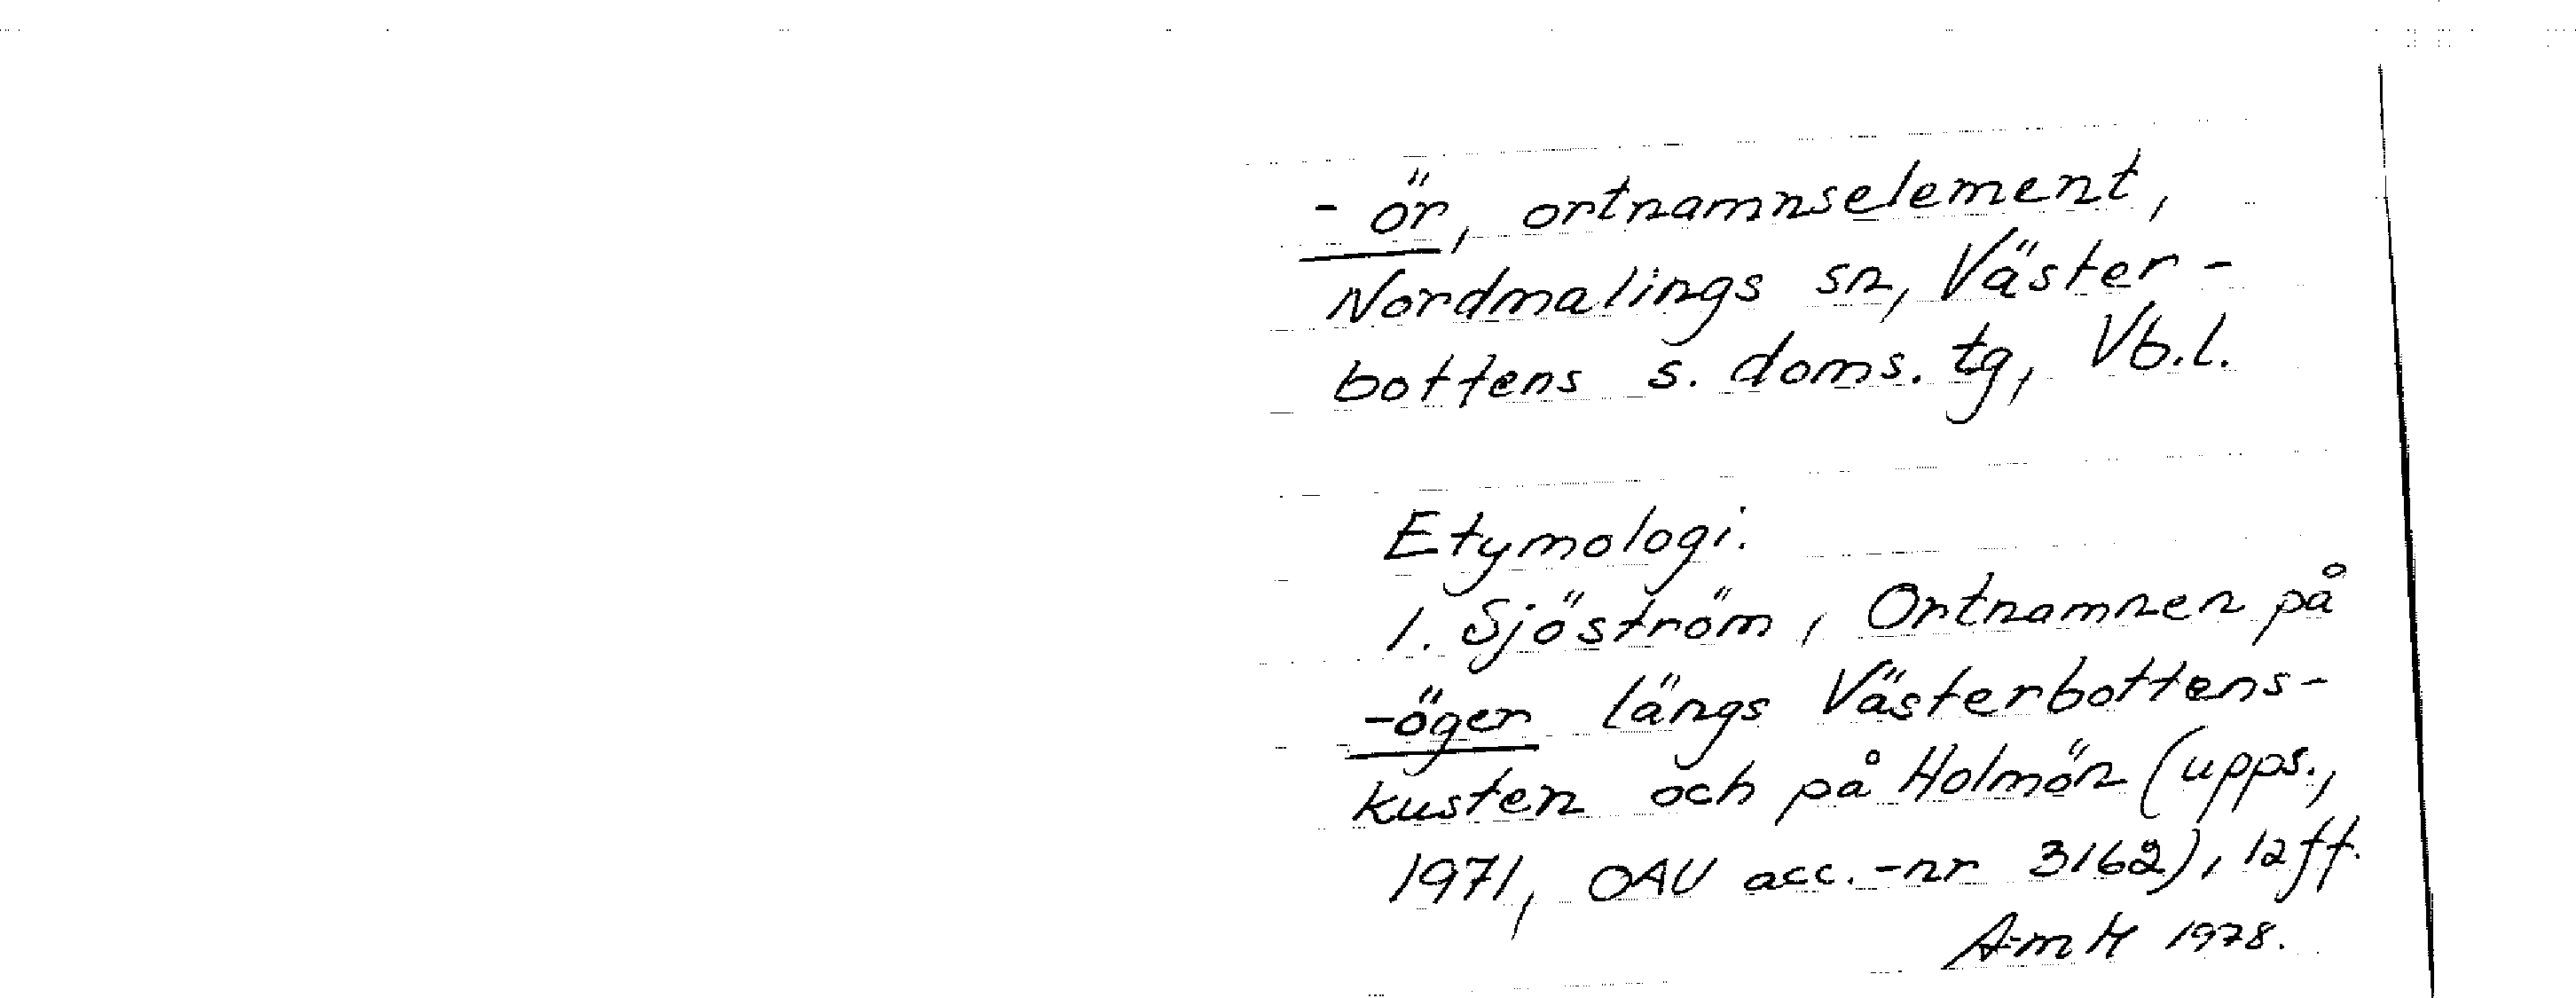 -ör, ortnamnselement,
Nordmalings sn, Väster-
bottens s. doms. tg, Vb.l.
Etymologi.
1. Sjöström, Ortnamnen på
-öger längs Västerbottens-
kusten och på Holmön (upps.,
1971, OAU acc.-nr 3162), 12 ff.
A-m H 1978.